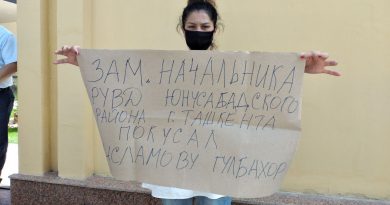 ЗАМ. НАЧАЛЬНИКА
РУВД ЮНУСАБАДСКОГО
РАЙОНА Г. ТАШКЕНТА
ПОКУСАЛ
ИСЛАМОВУ ГУЛБАХОР